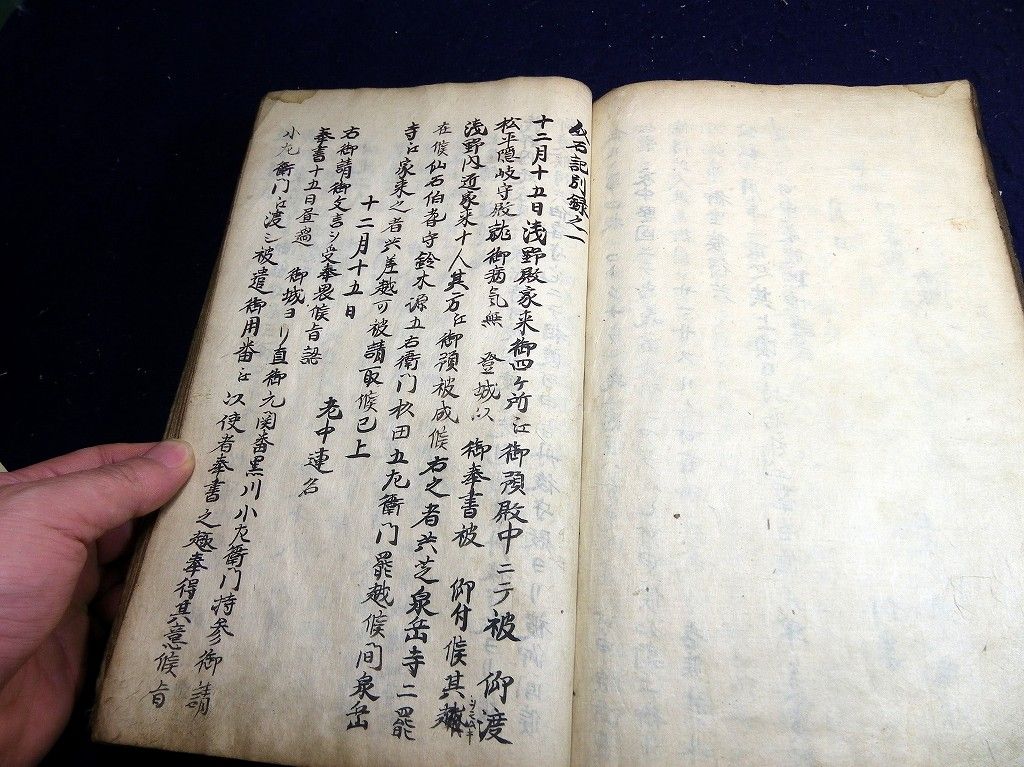 石記別録之一
十二月十五日浅野殿家来御四ケ所江御預殿中ニテ被 仰渡
松平隠岐守殿就御病気無 登城以 御奉書被 仰付候其趣
浅野内匠家来十人其方江御預被成候右之者共芝泉岳寺ニ罷
在候仙石伯耆守鈴木源五右衛門杉田五左衛門罷越候間泉岳
寺江家来之者共差越可被請取候已上
十二月十五日 老中連名
右御請御文言シ受奉畏候旨認
奉書十五日昼過 御城ヨリ直御元関番黒川小左衛門持参御請
小左衛門江渡シ被遣御用番江以使者奉書之趣奉得其意候旨